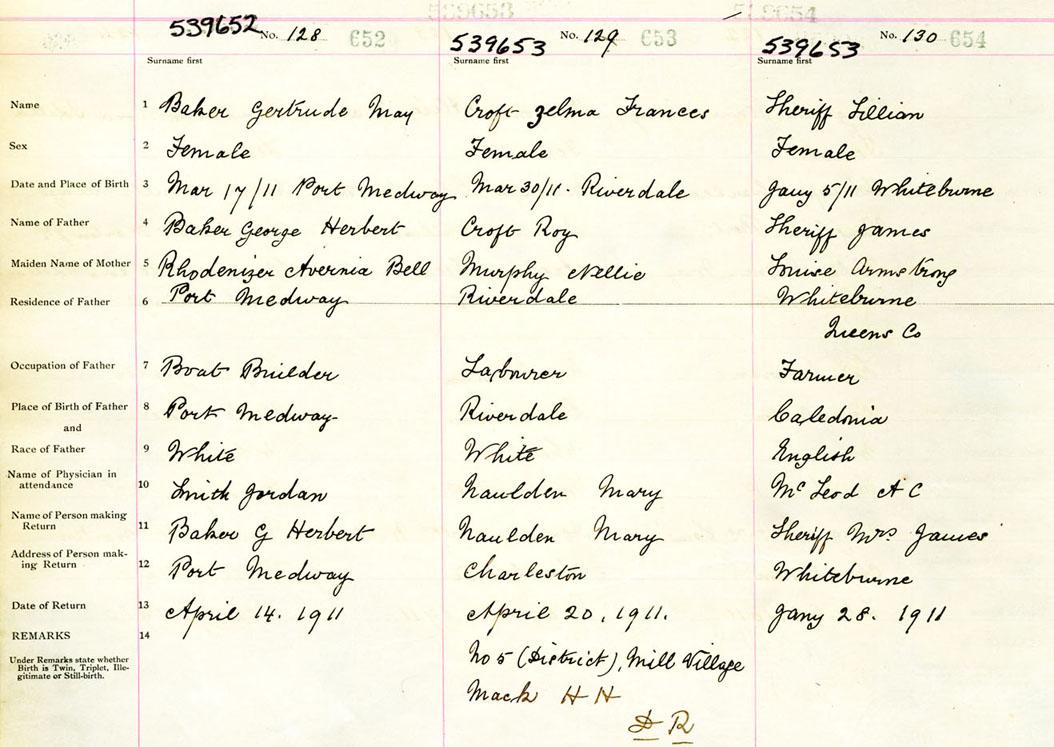 539652 No. 128 652 539653 No. 129 653 539653 No. 130 654
Surname first Surname first Surname first
Name 1 Baker Gertrude May Croft Zelma Frances Sheriff Lillian
Sex 2 Female Female Female
Date and Place of Birth 3 Mar 17/11 Port Medway Mar 30/11. Riverdale Jany 5/11 Whiteburne
Name of Father 4 Baker George Herbert Croft Roy Sheriff James
Maiden Name of Mother 5 Rhodenizer Avernia Bell Murphy Nellie Louise Armstrong
Residence of Father 6 Port Medway Riverdale Whiteburne
Queens Co
Occupation of Father 7 Boat Builder Labourer Farmer
Place of Birth of Father 8 Port Medway Riverdale Caledonia
and
Race of Father 9 White White English
Name of Physician in
attendance 10 Smith Jordan Naulden Mary McLeod A C
Name of Person making
Return 11 Baker G Herbert Naulden Mary Sheriff Mrs James
Address of Person mak-
ing Return 12 Port Medway Charleston Whiteburne
Date of Return 13 April 14. 1911 April 20, 1911. Jany 28. 1911
REMARKS 14
Under Remarks state whether
Birth is Twin, Triplet, Ille-
gitimate or Still-birth.
No 5 (District), Mill Village
Mack H H
D R